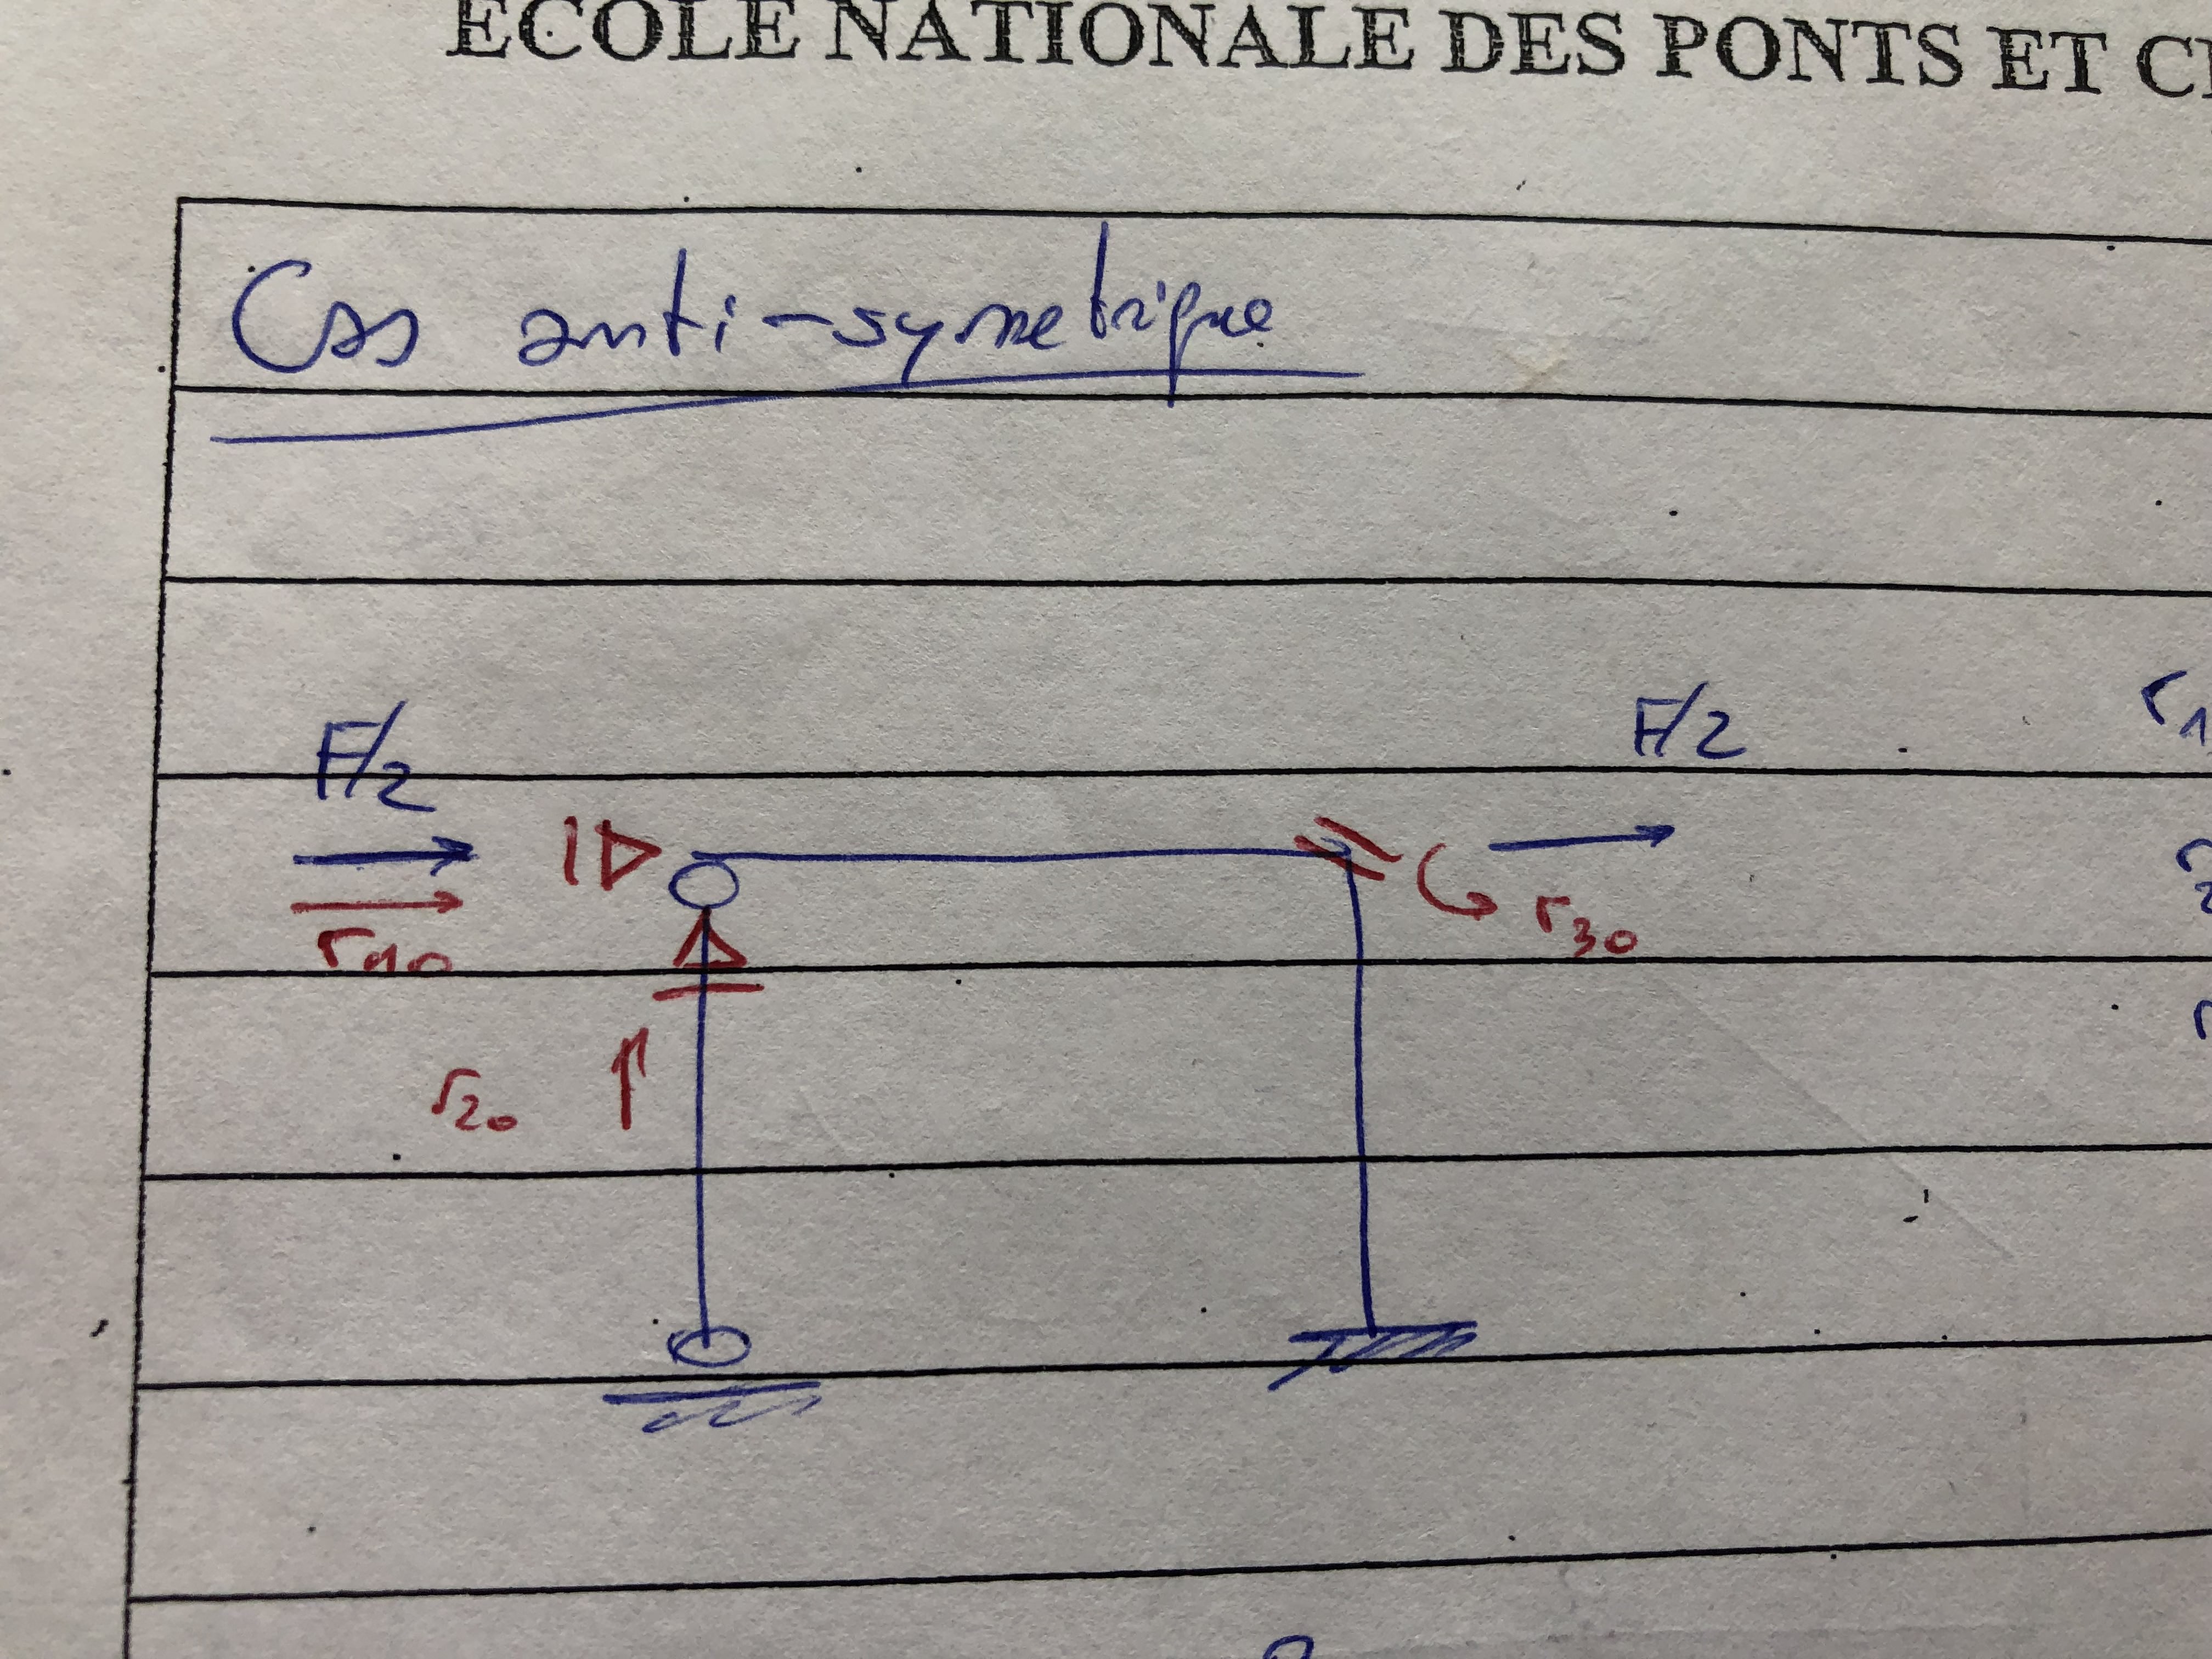 ECOLE NATIONALE DES PONTS ET C
Cas anti-symetrique
F/2
F/2
r10
r30
r20
r1
r2